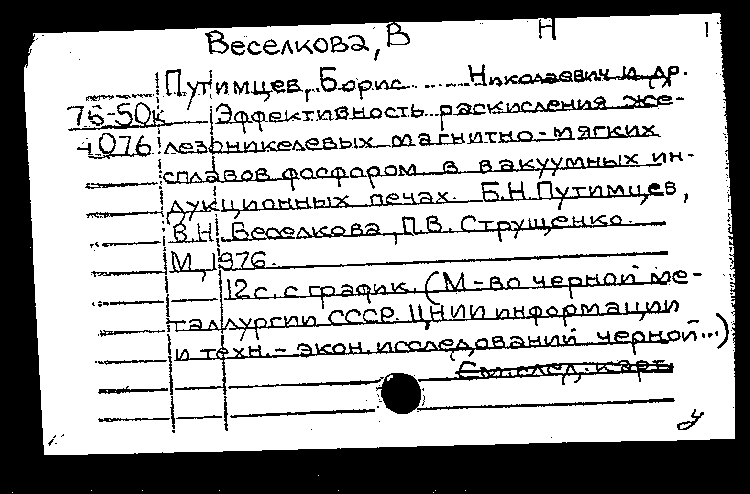 Веселкова, В Н 1
Путимцев, Борис Николаевич и др.
76-50к Эффективность раскисления же-
4076 лезоникелевых магнитно-мягких
сплавов фосфором в вакуумных ин-
дукционных печах. Б.Н.Путимцев,
В.Н. Веселкова, П.В. Струщенко.
М, 1976.
12 с. с график. (М-во черной ме-
таллургии СССР. ЦНИИ информации
и техн.-экон. исследований черной...)
См. след. карт.